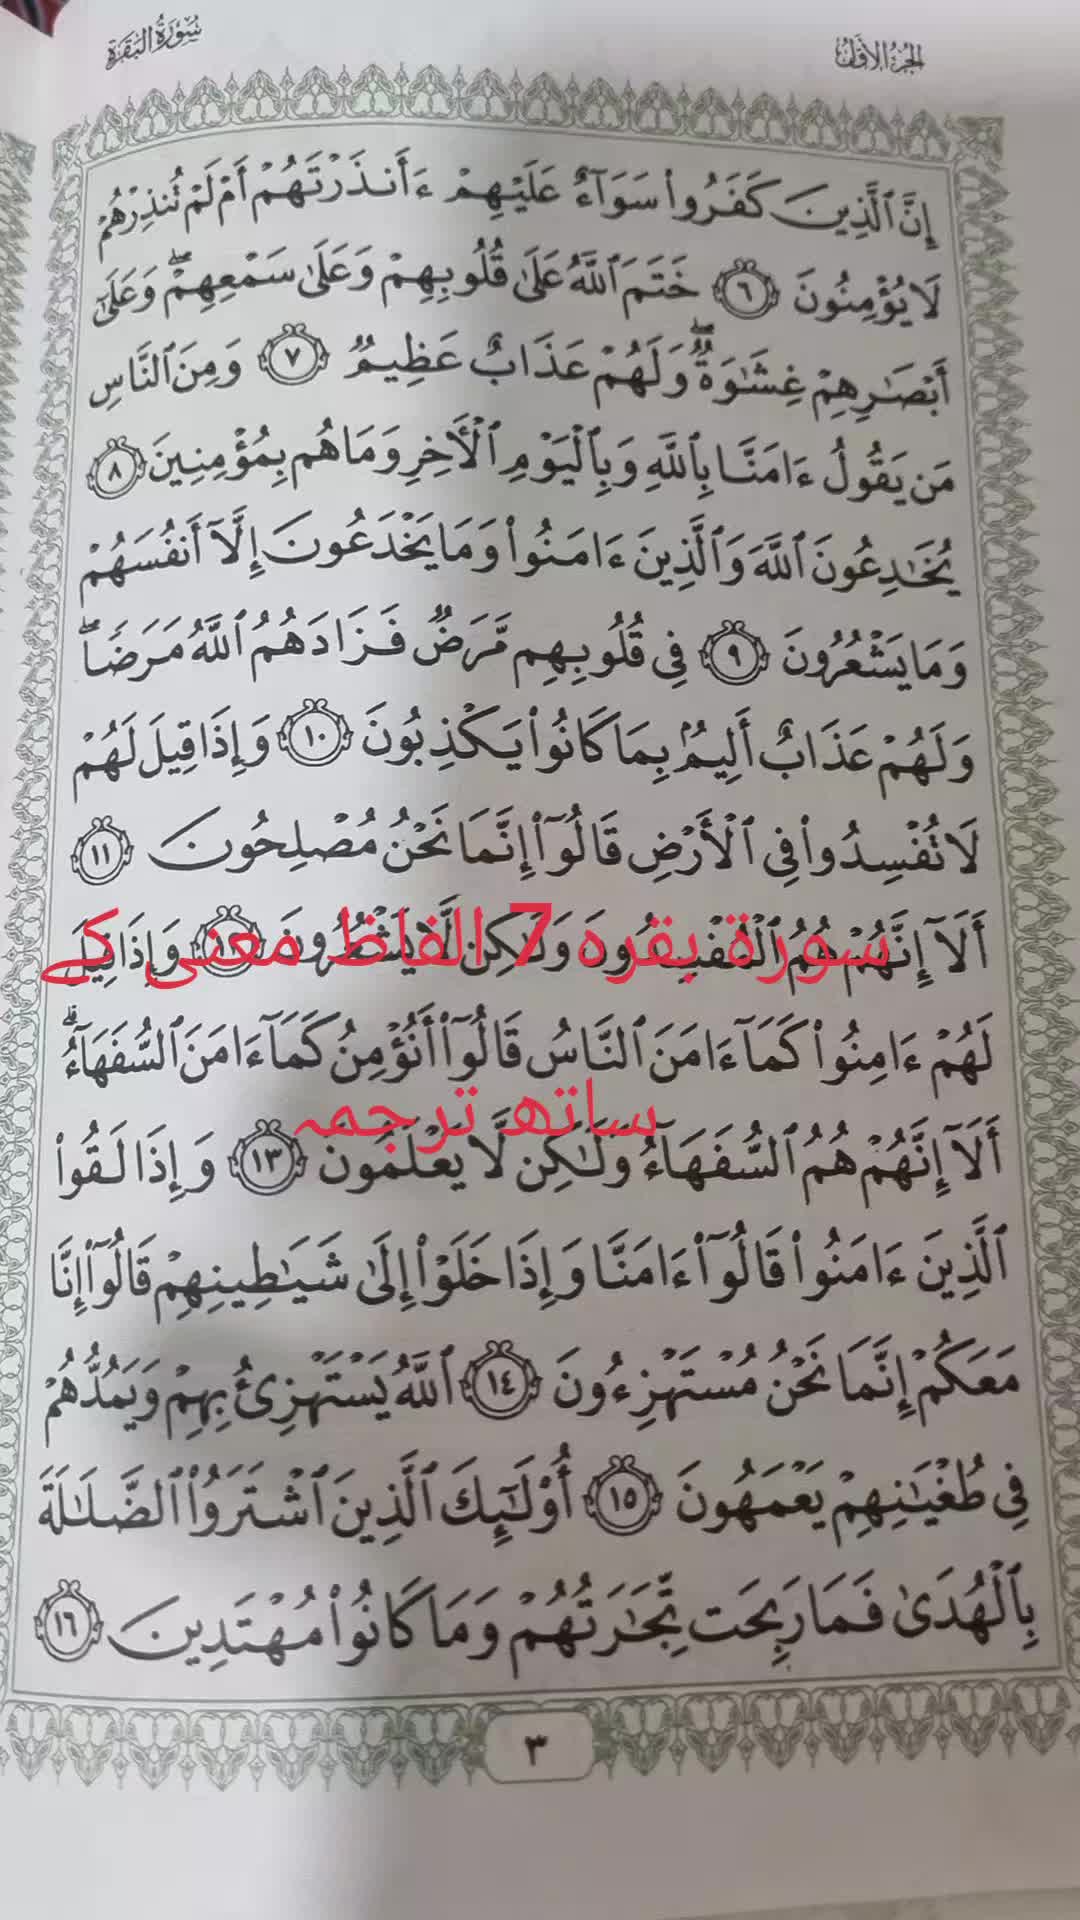 سُورَةُ البَقَرَةِ
الجُزْءُ الأَوَّلُ
إِنَّ ٱلَّذِينَ كَفَرُوا۟ سَوَآءٌ عَلَيْهِمْ ءَأَنذَرْتَهُمْ أَمْ لَمْ تُنذِرْهُمْ
لَا يُؤْمِنُونَ ٦ خَتَمَ ٱللَّهُ عَلَىٰ قُلُوبِهِمْ وَعَلَىٰ سَمْعِهِمْۖ وَعَلَىٰٓ
أَبْصَٰرِهِمْ غِشَٰوَةٌۖ وَلَهُمْ عَذَابٌ عَظِيمٌ ٧ وَمِنَ ٱلنَّاسِ
مَن يَقُولُ ءَامَنَّا بِٱللَّهِ وَبِٱلْيَوْمِ ٱلْأَخِرِ وَمَا هُم بِمُؤْمِنِينَ ٨
يُخَٰدِعُونَ ٱللَّهَ وَٱلَّذِينَ ءَامَنُوا۟ وَمَا يَخْدَعُونَ إِلَّآ أَنفُسَهُمْ
وَمَا يَشْعُرُونَ ٩ فِى قُلُوبِهِم مَّرَضٌ فَزَادَهُمُ ٱللَّهُ مَرَضًاۖ
وَلَهُمْ عَذَابٌ أَلِيمٌۢ بِمَا كَانُوا۟ يَكْذِبُونَ ١٠ وَإِذَا قِيلَ لَهُمْ
لَا تُفْسِدُوا۟ فِى ٱلْأَرْضِ قَالُوٓا۟ إِنَّمَا نَحْنُ مُصْلِحُونَ ١١
أَلَآ إِنَّهُمْ هُمُ ٱلْمُفْسِدُونَ وَلَٰكِن لَّا يَشْعُرُونَ ١٢ وَإِذَا قِيلَ
سورۃ بقرہ 7 الفاظ معنی کے
لَهُمْ ءَامِنُوا۟ كَمَآ ءَامَنَ ٱلنَّاسُ قَالُوٓا۟ أَنُؤْمِنُ كَمَآ ءَامَنَ ٱلسُّفَهَآءُۗ
ساتھ ترجمہ
أَلَآ إِنَّهُمْ هُمُ ٱلسُّفَهَآءُ وَلَٰكِن لَّا يَعْلَمُونَ ١٣ وَإِذَا لَقُوا۟
ٱلَّذِينَ ءَامَنُوا۟ قَالُوٓا۟ ءَامَنَّا وَإِذَا خَلَوْا۟ إِلَىٰ شَيَٰطِينِهِمْ قَالُوٓا۟ إِنَّا
مَعَكُمْ إِنَّمَا نَحْنُ مُسْتَهْزِءُونَ ١٤ ٱللَّهُ يَسْتَهْزِئُ بِهِمْ وَيَمُدُّهُمْ
فِى طُغْيَٰنِهِمْ يَعْمَهُونَ ١٥ أُو۟لَٰٓئِكَ ٱلَّذِينَ ٱشْتَرَوُا۟ ٱلضَّلَٰلَةَ
بِٱلْهُدَىٰ فَمَا رَبِحَت تِّجَٰرَتُهُمْ وَمَا كَانُوا۟ مُهْتَدِينَ ١٦
٣